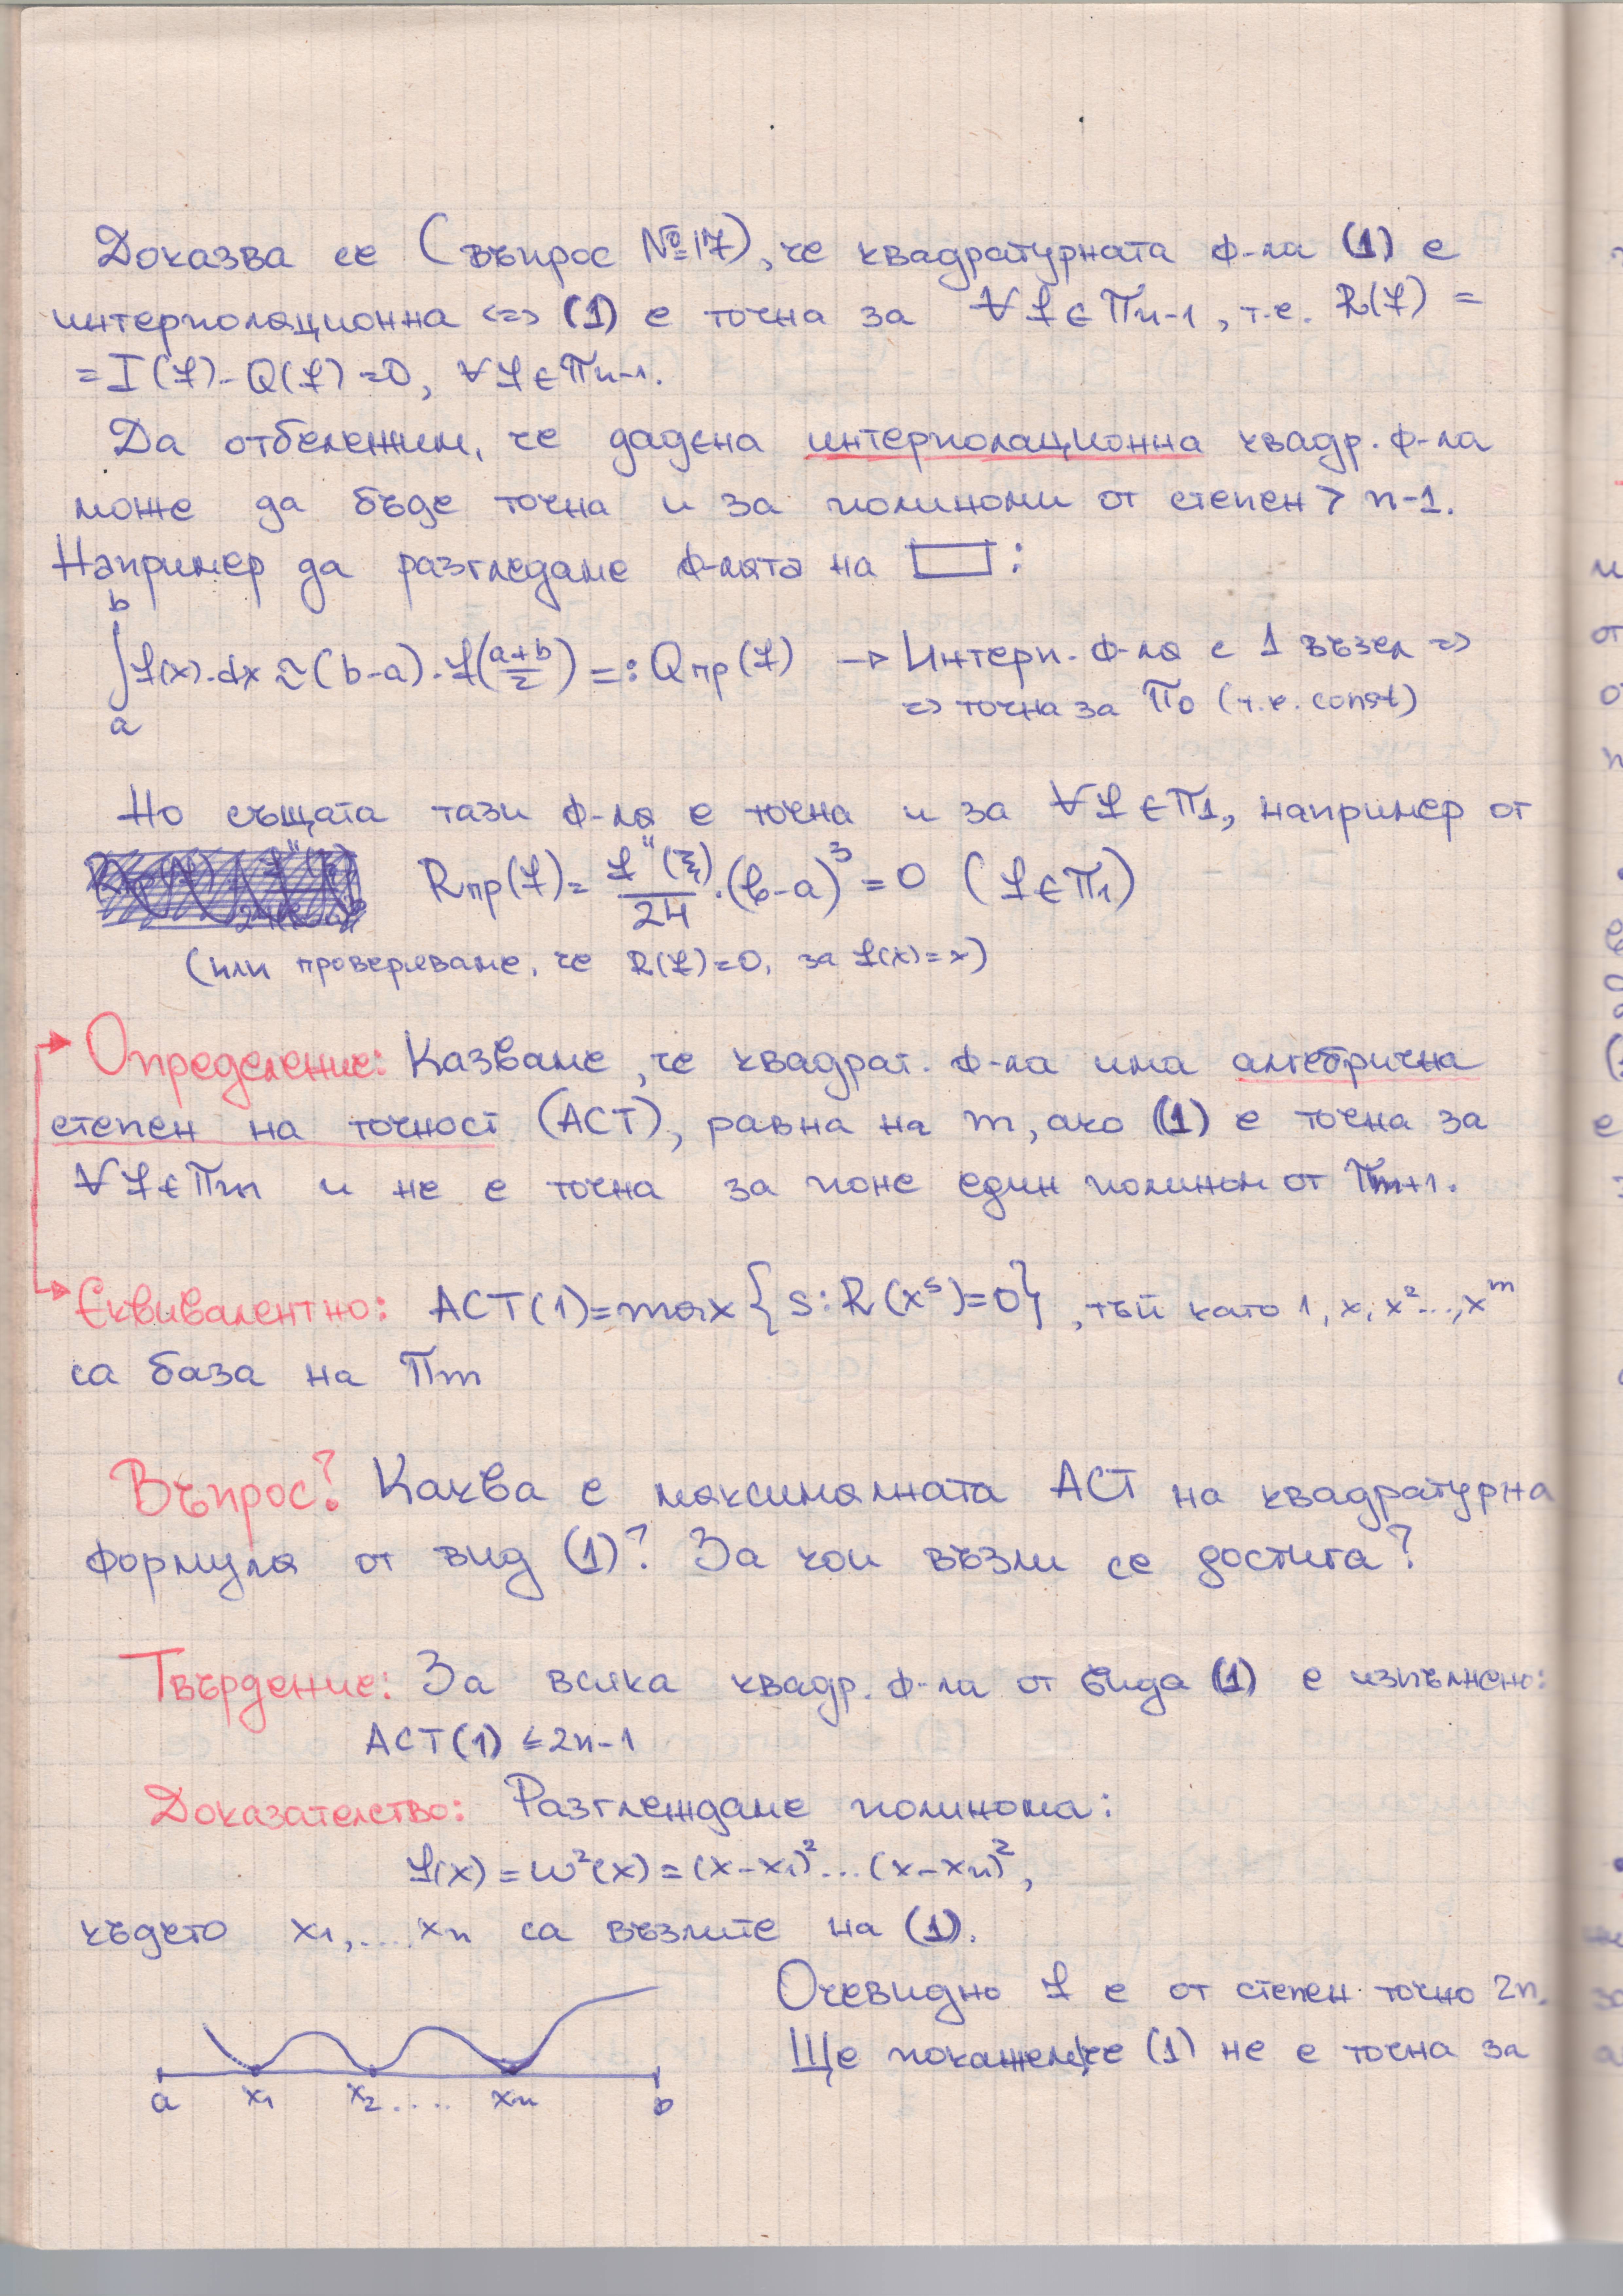 Доказва се (въпрос №17), че квадратурната ф-ла (1) е
интерполационна <=> (1) е точна за ∀f∈πn-1, т.е. R(f) =
= I(f) - Q(f) = 0, ∀f∈πn-1.
Да отбележим, че дадена интерполационна квадр. ф-ла
може да бъде точна и за полиноми от степен > n-1.
Например да разгледаме ф-лата на ▭:
∫ₐᵇ f(x).dx ≈ (b-a).f((a+b)/2) =: Qпр(f) → Интерп. ф-ла с 1 възел =>
=> точна за π0 (т.е. const)
Но същата тази ф-ла е точна и за ∀f∈π1, например от
Rпр(f) = f''(ξ)/24 .(b-a)³ = 0 (f∈π1)
(или проверяваме, че R(f)=0, за f(x)=x)
Определение: Казваме, че квадрат. ф-ла има алгебрична
степен на точност (АСТ), равна на m, ако (1) е точна за
∀f∈πm и не е точна за поне един полином от πm+1.
Еквивалентно: АСТ(1)=max{s:R(xˢ)=0}, тъй като 1, x, x²...,xᵐ
са база на πm
Въпрос? Каква е максималната АСТ на квадратурна
формула от вид (1)? За кои възли се достига?
Твърдение: За всяка квадр. ф-ла от вида (1) е изпълнено:
АСТ(1) ≤ 2n-1
Доказателство: Разглеждаме полинома:
f(x) = ω²(x) = (x-x1)²...(x-xn)²,
където x1,....xn са възлите на (1).
Очевидно f е от степен точно 2n.
Ще покажем, че (1) не е точна за
a x1 x2 .... xn b